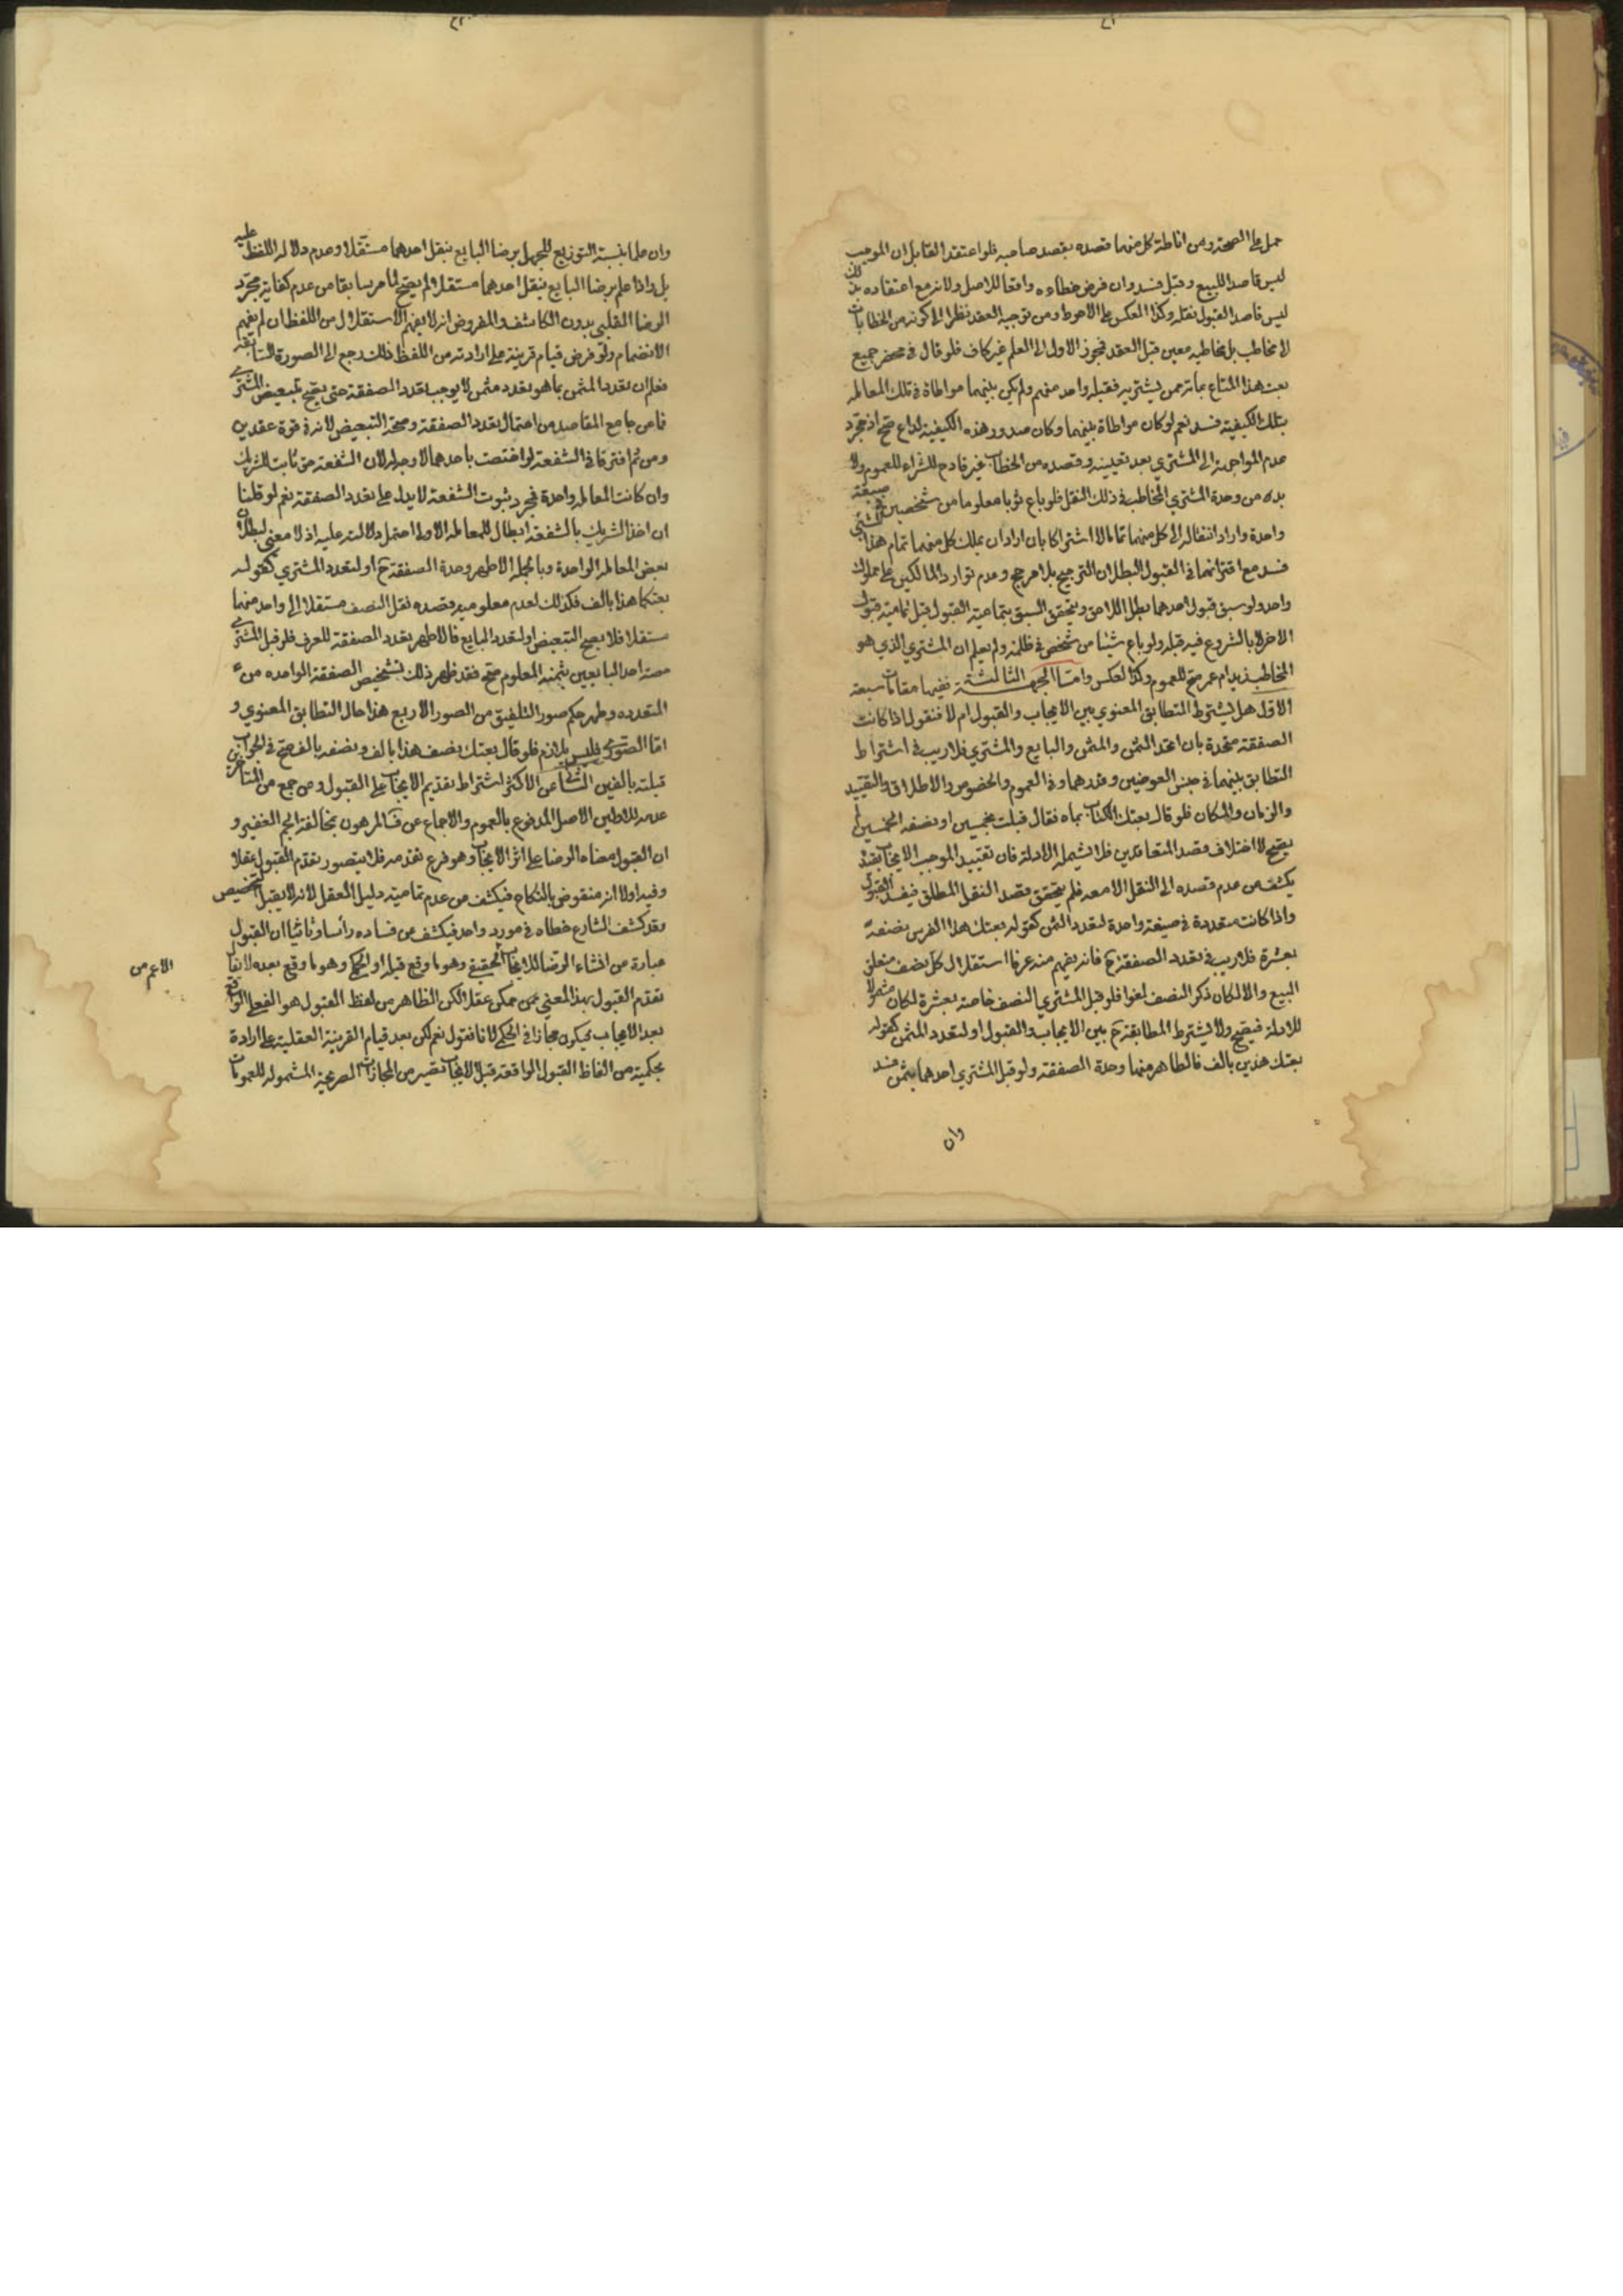 حمل على الصحة ومن اناطة كل منهما قصده بقصد صاحبه فلو اعتقد القابل ان الموجب
ليس قاصدا للبيع وقبل فسد وان فرض خطاءه وافقا للاصل ولانه مع اعتقاده بذلك
ليس قاصدا لقبول نقله وكذا العكس على الاحوط ومن توجيه العقد نظرا الى كونه من الخطابات
لا مخاطب بل مخاطبه معين قبل العقد فيجوز الاول الى العلم غير كاف فلو قال في محضر جميع
بعت هذا المتاع بمأة ممن يشتريه فقبله واحد منهم ولم يكن بينهما مواطاة في تلك المعاملة
بتلك الكيفية فسد نعم لو كان مواطاة بينهما وكان صدور هذه الكيفية لداع صح اذ مجرد
عدم المواجهة الى المشتري بعد تعيينه وقصده من الخطاب غير قادح للشراء للعموم ولا
بد من وحدة المشتري المخاطب في ذلك النقل فلو باع ثوبا معلوما من شخصين في صيغة
واحدة واراد انتقاله الى كل منهما تماما لا اشتراكا بان اراد ان يملك كل منهما تمام هذا الشيء
فسد مع اقترانهما في القبول لبطلان الترجيح بلا مرجح وعدم توارد المالكين على مملوك
واحد ولو سبق قبول احدهما بطل اللاحق ويتحقق السبق بتمامية القبول قبل تمامية قبول
الاخر لا بالشروع فيه قبله ولو باع شيئا من شخص في ظلمة ولم يعلم ان المشتري الذي هو
المخاطب زيد ام عمر صح للعموم وكذا العكس وامّا الجهة الثالثة ففيها مقامات سبعة
الاول هل يشترط التطابق المعنوي بين الايجاب والقبول ام لا فنقول اذا كانت
الصفقة متحدة بان اتحد الثمن والمثمن والبايع والمشتري فلا ريب في اشتراط
التطابق بينهما في جنس العوضين وقدرهما وفي العموم والخصوص والاطلاق والتقييد
والزمان والمكان فلو قال بعتك الكتاب بماه فقال قبلت بخمسين او نصفه بخمسين لم
يصح لاختلاف قصد المتعاقدين فلا تشمله الادلة فان تقييد الموجب الايجاب بقيد
يكشف من عدم قصده الى النقل الا معه فلم يتحقق قصد النقل المطلق فيفسد القبول
واذا كانت متعددة في صيغة واحدة لتعدد الثمن كقوله بعتك هذا الفرس نصفه
بعشرة فلا ريب في تعدد الصفقة ح فانه يفهم منه عرفا استقلال كل نصف متعلق
البيع والا لكان ذكر النصف لغوا فلو قبل المشتري النصف خاصة بعشرة لكان مشمولا
للادلة فيصح ولا يشترط المطابقة ح بين الايجاب والقبول او لتعدد المثمن كقوله
بعتك هذين بالف فالظاهر منها وحدة الصفقة ولو قبل المشتري احدهما بثمن فسد
وان
وان علما بنسبة التوزيع للجهل برضا البايع بنقل احدهما مستقلا وعدم دلالة اللفظ عليه
بل واذا علم برضا البايع بنقل احدهما مستقلا لم يصح لما مر سابقا من عدم كفاية مجرد
الرضا القلبي بدون الكاشف والمفروض انه لا يفهم الاستقلال من اللفظ ان لم يفهم
الانضمام ولو فرض قيام قرينة على ارادته من اللفظ فذلك رجع الى الصورة السابقة
فعلم ان تعدد المثمن بما هو تعدد مثمن لا يوجب تعدد الصفقة حتى يصح تبعيض المشتري
فما عن جامع المقاصد من احتمال تعدد الصفقة وصحة التبعيض لانه في قوة عقدين
ومن ثم افترقا في الشفعة لو اختصت باحدهما لا وجه له لان الشفعة حق ثابت للشريك
وان كانت المعاملة واحدة فمجرد ثبوت الشفعة لا يدل على تعدد الصفقة نعم لو قلنا
ان اخذ الشريك بالشفعة ابطال للمعاملة الاولى احتمل دلالته عليه اذ لا معنى لبطلان
بعض المعاملة الواحدة وبالجملة الاظهر وحدة الصفقة ح او لتعدد المشتري كقوله
بعتكما هذا بالف فكذلك لعدم معلومية قصده نقل النصف مستقلا الى واحد منهما
مستقلا فلا يصح التبعيض او لتعدد البايع فالاظهر تعدد الصفقة للعرف فلو قبل المشتري
حصة احد البايعين بثمنه المعلوم صح فقد ظهر ذلك تشخيص الصفقة الواحده من
المتعدده وظهر حكم صور التلفيق من الصور الاربع هذا حال التطابق المعنوي و
امّا الصوري فليس بلازم فلو قال بعتك نصف هذا بالف ونصفه بالف صح في الجواب
قبلته بالفين الثاني عن الاكثر اشتراط تقديم الايجاب على القبول وعن جمع من المتاخرين
عدمه للاولين الاصل المدفوع بالعموم والاجماع عن ف المرهون بمخالفة الجم الغفير و
ان القبول معناه الرضا على اثر الايجاب وهو فرع تقدمه فلا يتصور تقدم القبول عقلا
وفيه اولا انه منقوض بالنكاح فيكشف من عدم تمامية دليل العقل لانه لا يقبل التخصيص
وقد كشف الشارع خطاه في مورد واحد فيكشف من فساده رأسا وثانيا ان القبول
عبارة من انشاء الرضا للايجاب الحقيقي وهو ما وقع قبله او الحكمي وهو ما وقع بعده لا يقال
الاعم من
تقدم القبول بهذا المعنى ممكن عقلا لكن الظاهر من لفظ القبول هو الفعلي الواقع
بعد الايجاب فيكون مجازا في الحكمي لانا نقول نعم لكن بعد قيام القرينة العقلية على ارادة
حكمية من الفاظ القبول الواقعة قبل الايجاب تصير من المجازات الصريحة المشمولة للعمومات